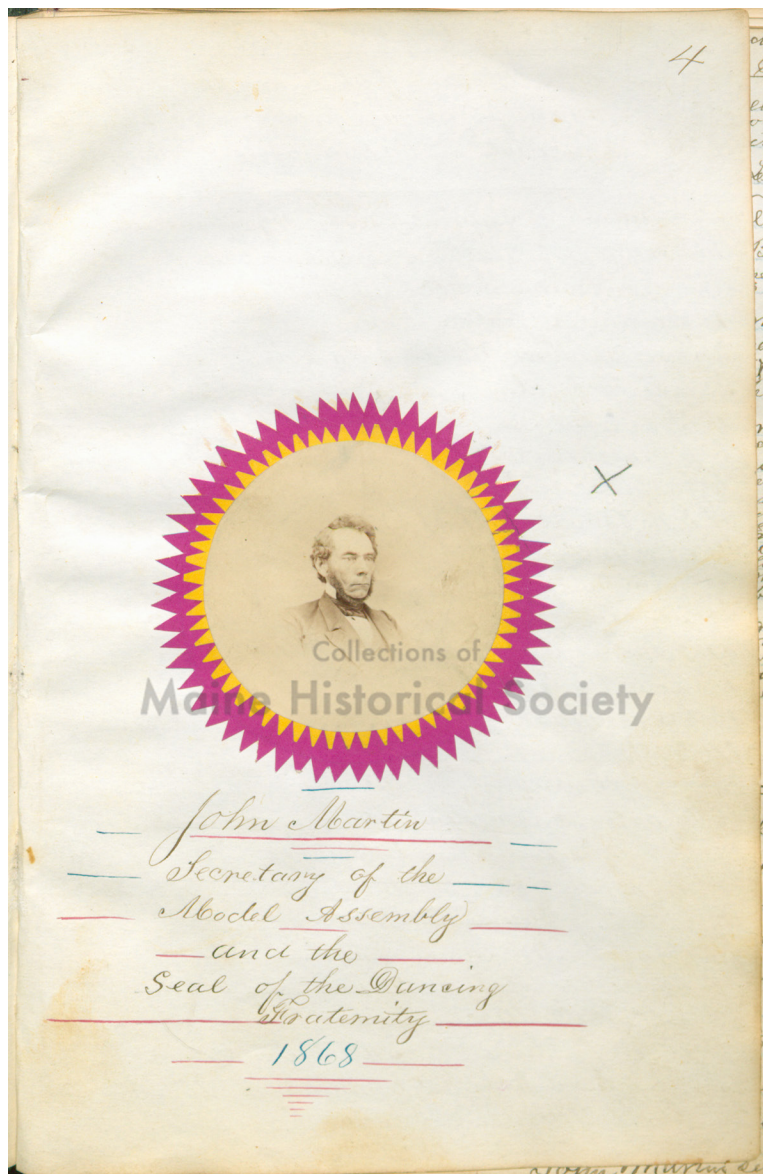 4
X
Collections of
Maine Historical Society
John Martin
Secretary of the
Model Assembly
and the
Seal of the Dancing
Fraternity
1868
John Martin